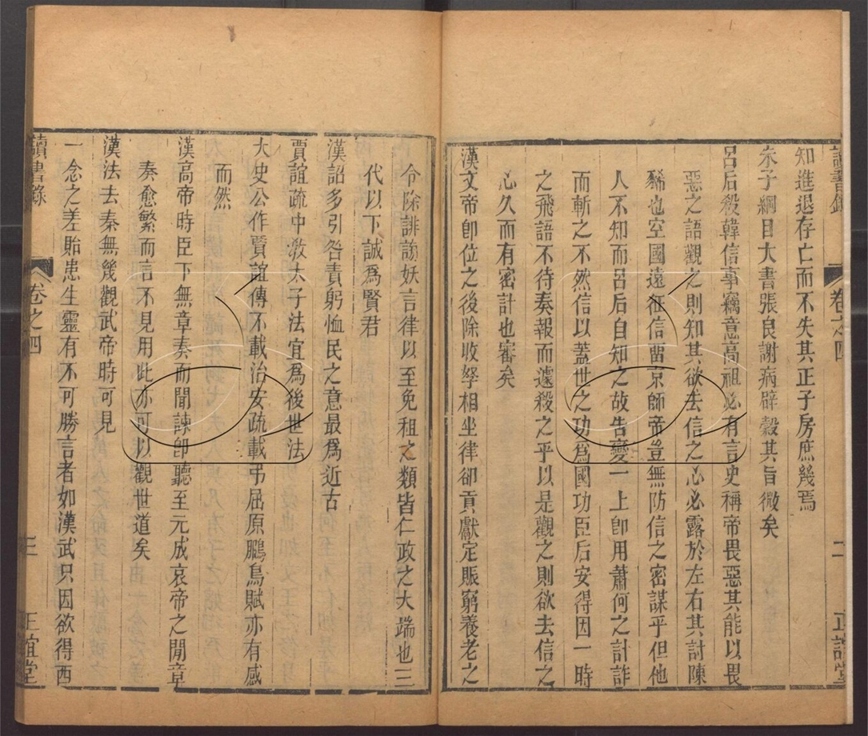 讀書錄 卷之四 二 正誼堂
知進退存亡而不失其正子房庶幾焉
朱子綱目大書張良謝病辟穀其旨微矣
呂后殺韓信事竊意高祖必有言史稱帝畏惡其能以畏
惡之語觀之則知其欲去信之心必露於左右其討陳
豨也空國遠征信留京師帝豈無防信之密謀乎但他
人不知而呂后自知之故告變一上卽用蕭何之計詐
而斬之不然信以蓋世之功爲國功臣后安得因一時
之飛語不待奏報而遽殺之乎以是觀之則欲去信之
心久而有密計也審矣
漢文帝卽位之後除收孥相坐律卻貢獻定賑窮養老之
令除誹謗妖言律以至免租之類皆仁政之大端也三
代以下誠爲賢君
漢詔多引咎責躬恤民之意最爲近古
賈誼疏中敎太子法宜爲後世法
太史公作賈誼傳不載治安疏載弔屈原鵩鳥賦亦有感
而然
漢高帝時臣下無章奏而聞諫卽聽至元成哀帝之間章
奏愈繁而言不見用此亦可以觀世道矣
漢法去秦無幾觀武帝時可見
一念之差貽患生靈有不可勝言者如漢武只因欲得西
讀書錄 卷之四 三 正誼堂